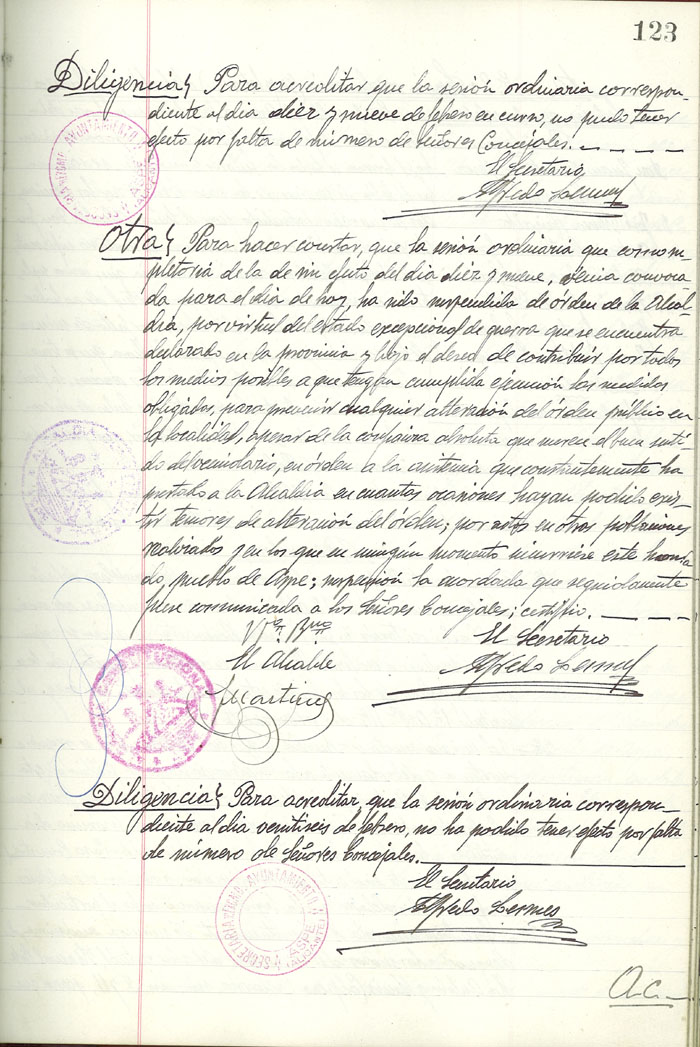 123
Diligencia} Para acreditar, que la sesión ordinaria correspon-
diente al dia diez y nueve de febrero en curso, no pudo tener
efecto por falta de número de Señores Concejales.
El Secretario
Alfredo
Otra} Para hacer constar, que la sesión ordinaria que como com-
pletoria de la de sin efecto del dia diez y nueve, venia convoca-
da para el dia de hoy, ha sido suspendida de órden de la Alcal-
día, por virtud del estado excepcional de guerra que se encuentra
declarado en la provincia y bajo el deseo de contribuir por todos
los medios posibles a que tengan cumplida ejecución las medidas
obligadas, para prevenir cualquier alteración del órden público en
la localidad, apesar de la confianza absoluta que merece el buen senti-
do del vecindario, en órden a la asistencia que constantemente ha
prestado a la Alcaldía en cuantas ocasiones hayan podido exis-
tir temores de alteración del órden; por actos en otras poblaciones
realizados y en los que en ningún momento incurriese este honra-
do, pueblo de Aspe; suspensión la acordada que seguidamente
fuese comunicada a los Señores Concejales; certifico.
Vto. Bno
El Alcalde
El Secretario
Alfredo
Diligencia} Para acreditar, que la sesión ordinaria correspon-
diente al dia ventiseis de febrero, no ha podido tener efecto por falta
de número de Señores Concejales.
El Secretario
Alfredo
SECRETARIA AYUNTAMIENTO
ASPE
(ALICANTE)